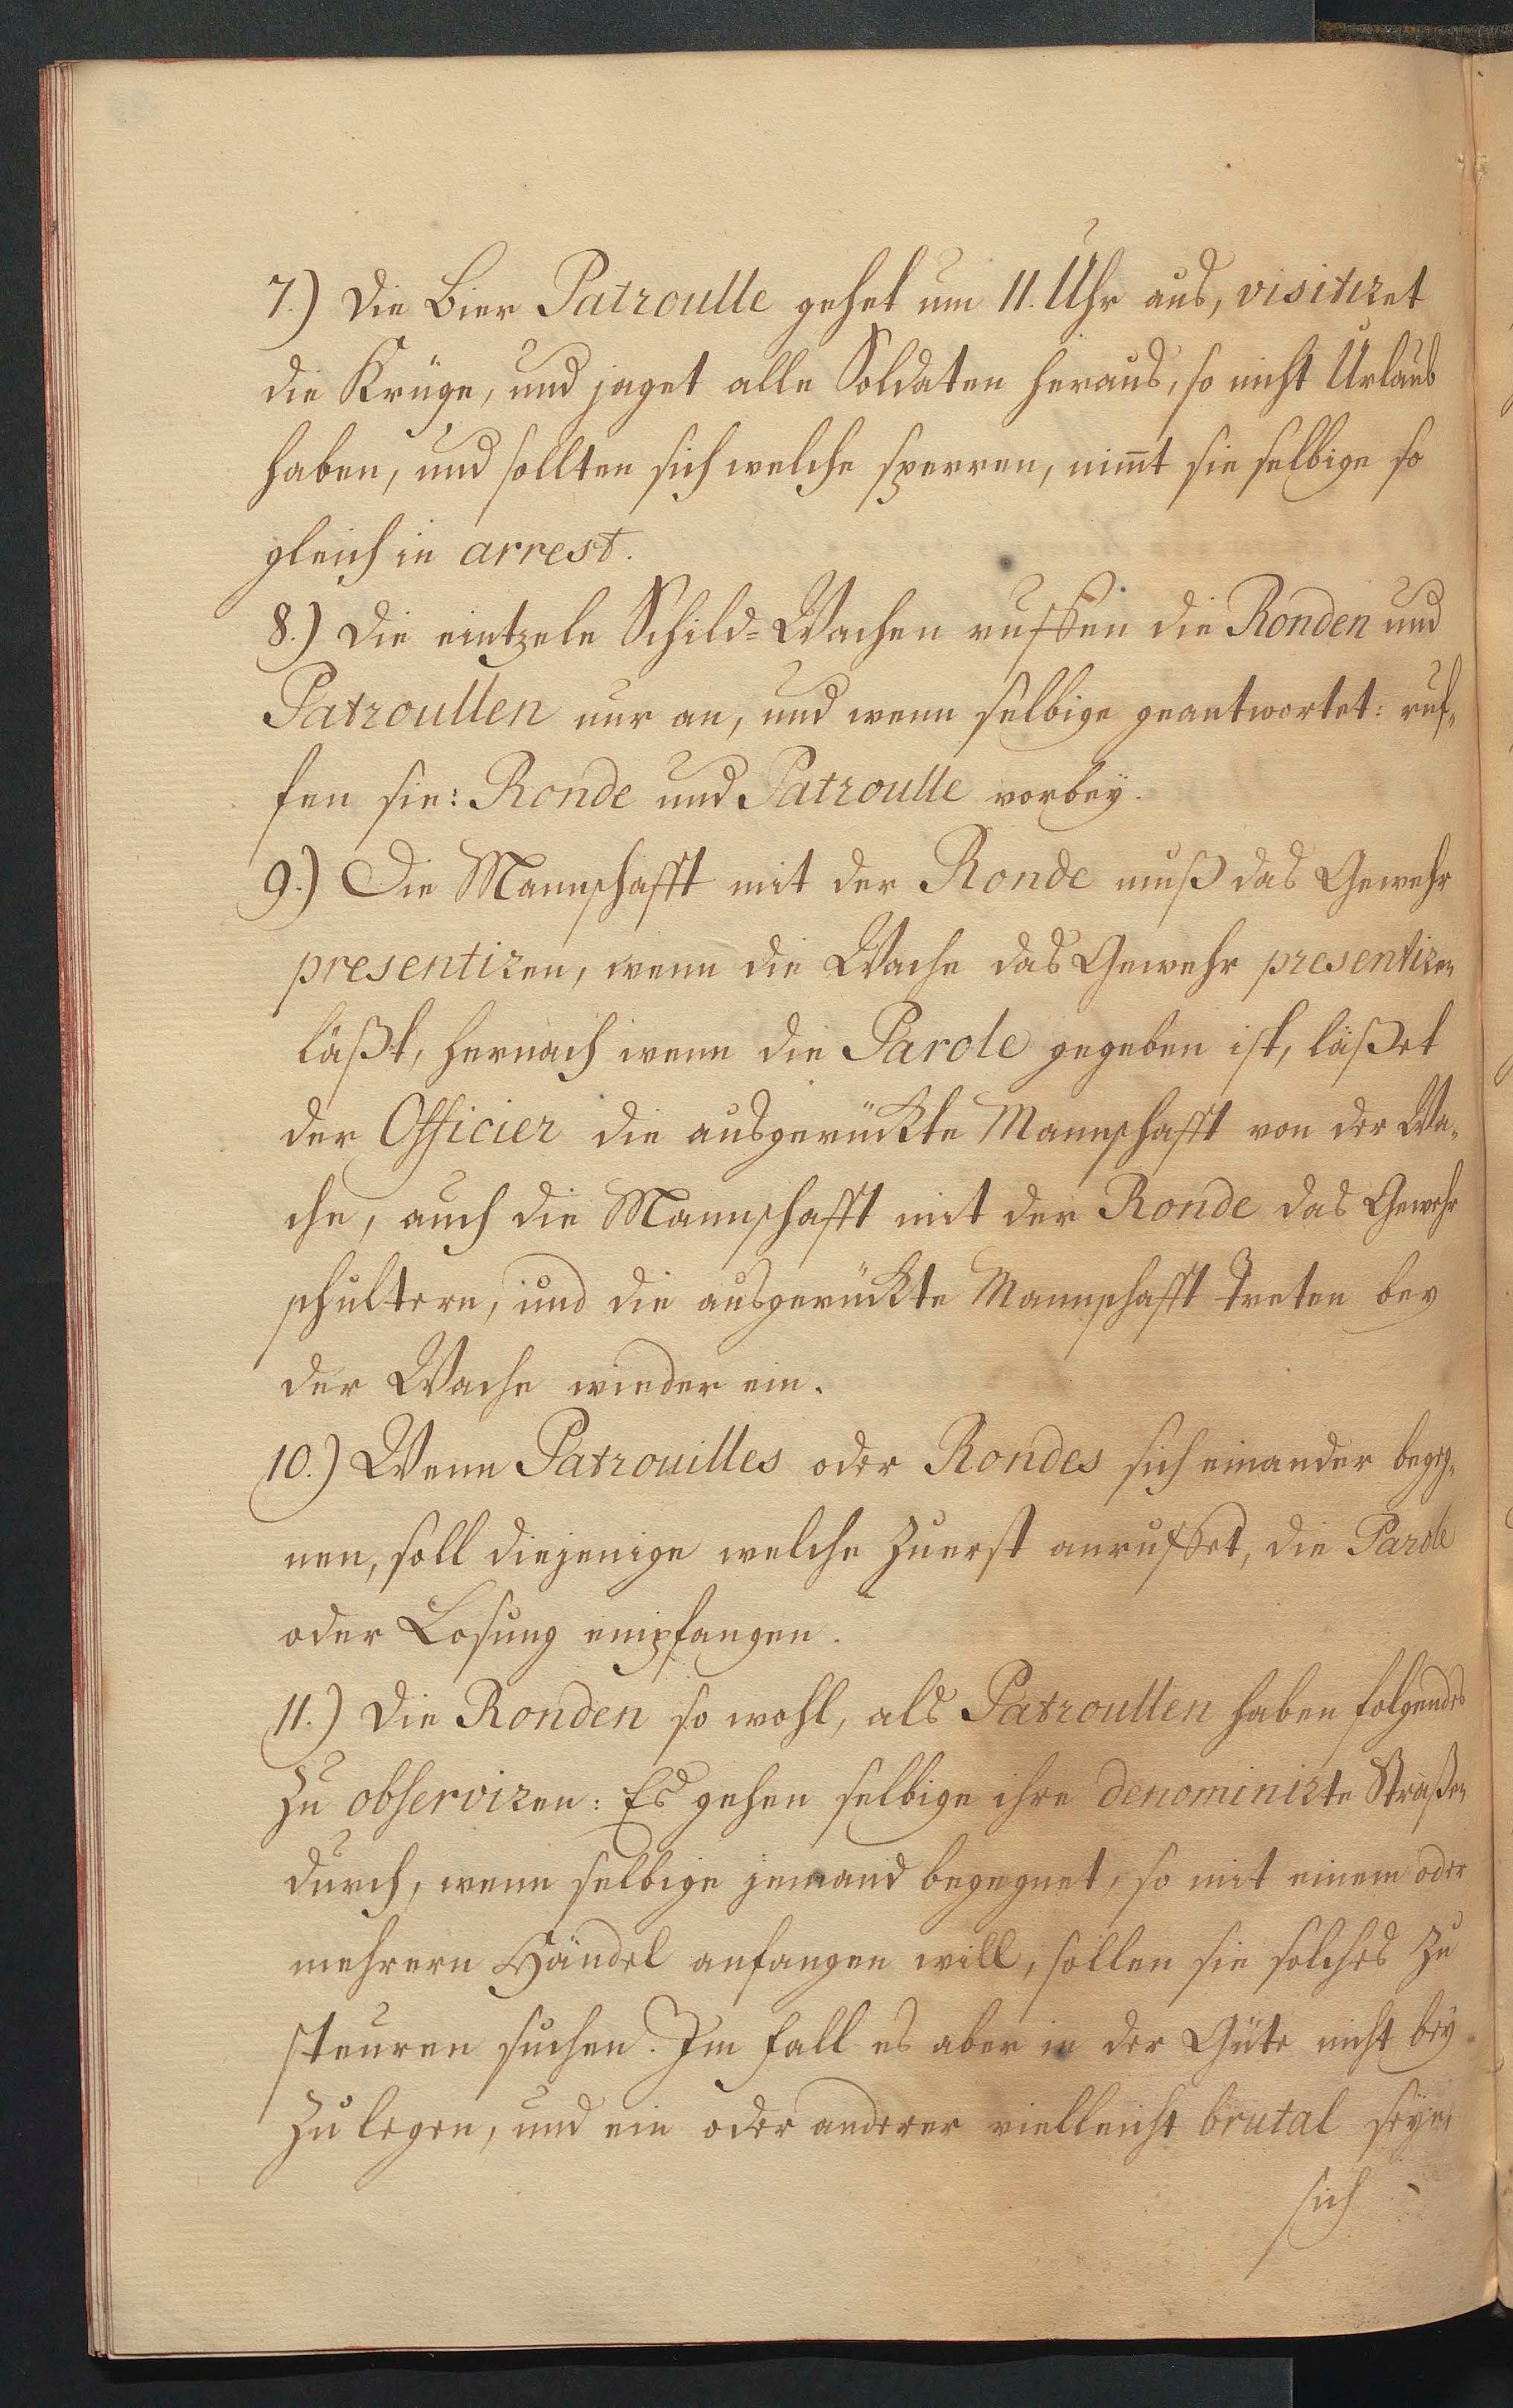 7.) Die Bier Patroulle gehet um 11. Uhr aus, visitiret
die Krüge, und jaget alle Soldaten heraus, so nicht Urlaub
haben, und sollten sich welche sperren, nim̅t sie selbige so
gleich in arrest.
8.) Die eintzele Schild=Wachen ruffen die Ronden und
Patroullen nur an, und wenn selbige geantwortet: ruf„
fen sie: Ronde und Patroulle vorbeÿ.
9.) Die Mannschafft mit der Ronde muß das Gewehr
presentiren, wenn die Wache das Gewehr presentiren
läßt, hernach wenn die Parole gegeben ist, läßet
der Officier die ausgerückte Mannschafft von der Wa„
che, auch die Mannschafft mit der Ronde das Gewehr
schultern, und die ausgerückte Mannschafft treten bey
der Wache wieder ein.
10.) Wenn Patrouilles oder Rondes sich einander begeg„
nen, soll diejenige welche zuerst anruffet, die Parole
oder Losung empfangen.
11.) Die Ronden so wohl, als Patroullen haben folgendes
zu observiren: Es gehen selbige ihre denominirte Straßen
durch, wenn selbige jemand begegnet, so mit einem oder
mehrern Händel anfangen will, sollen sie solches zu
steuren suchen. Im fall es aber in der Güte nicht bey„
zu legen, und ein oder anderer vielleicht brutal seyn,
sich